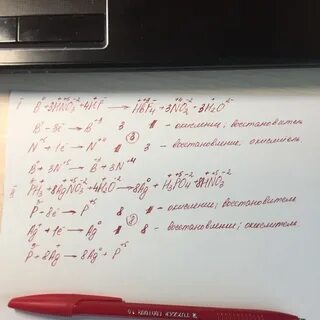 I B⁰ + 3HNO₃ + 4HF → HBF₄ + 3NO₂ + 3H₂O
B⁰ - 3e⁻ → B⁺³ 3 1 - окисление; восстановитель
N⁺⁵ + 1e⁻ → N⁺⁴ 1 3 - восстановление, окислитель
B⁰ + 3N⁺⁵ → B⁺³ + 3N⁺⁴
II PH₃ + 8AgNO₃ + 4H₂O → 8Ag⁰ + H₃PO₄ + 8HNO₃
P⁻³ - 8e⁻ → P⁺⁵ 8 1 - окисление; восстановитель
Ag⁺ + 1e⁻ → Ag⁰ 1 8 - восстановление; окислитель
P⁻³ + 8Ag⁺ → 8Ag⁰ + P⁺⁵